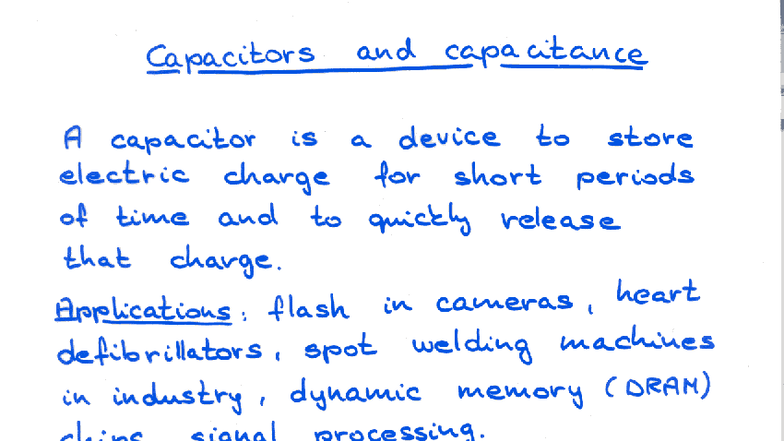 Capacitors and capacitance
A capacitor is a device to store
electric charge for short periods
of time and to quickly release
that charge.
Applications: flash in cameras, heart
defibrillators, spot welding machines
in industry, dynamic memory (DRAM)
chips, signal processing.